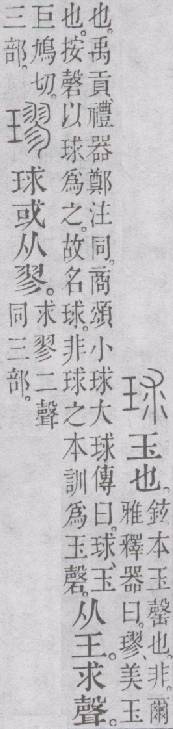 球玉也。
鉉本玉磬也。非。爾
雅釋器曰。璆、美玉
也。禹貢、禮器鄭注同。商頌小球大球傳曰。球、玉
也。按磬以球爲之。故名球。非球之本訓爲玉磬。
从王。求聲。
巨鳩切。
三部。
璆球或从翏。
求翏二聲
同三部。